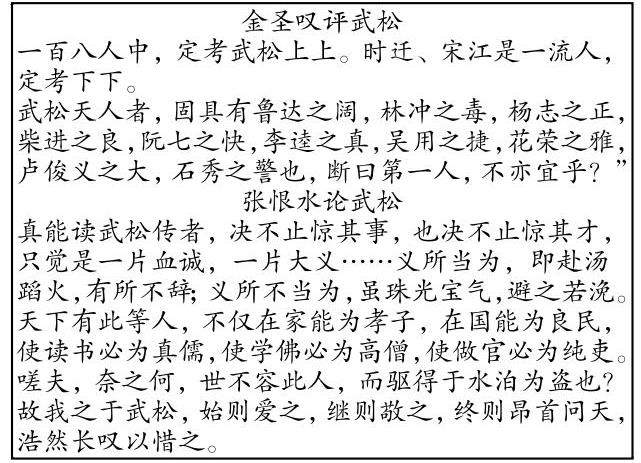 金圣叹评武松
一百八人中，定考武松上上。时迁、宋江是一流人，
定考下下。
武松天人者，固具有鲁达之阔，林冲之毒，杨志之正，
柴进之良，阮七之快，李逵之真，吴用之捷，花荣之雅，
卢俊义之大，石秀之警也，断曰第一人，不亦宜乎？”
张恨水论武松
真能读武松传者，决不止惊其事，也决不止惊其才，
只觉是一片血诚，一片大义……义所当为，即赴汤
蹈火，有所不辞；义所不当为，虽珠光宝气，避之若浼。
天下有此等人，不仅在家能为孝子，在国能为良民，
使读书必为真儒，使学佛必为高僧，使做官必为纯吏。
嗟夫，奈之何，世不容此人，而驱得于水泊为盗也？
故我之于武松，始则爱之，继则敬之，终则昂首问天，
浩然长叹以惜之。